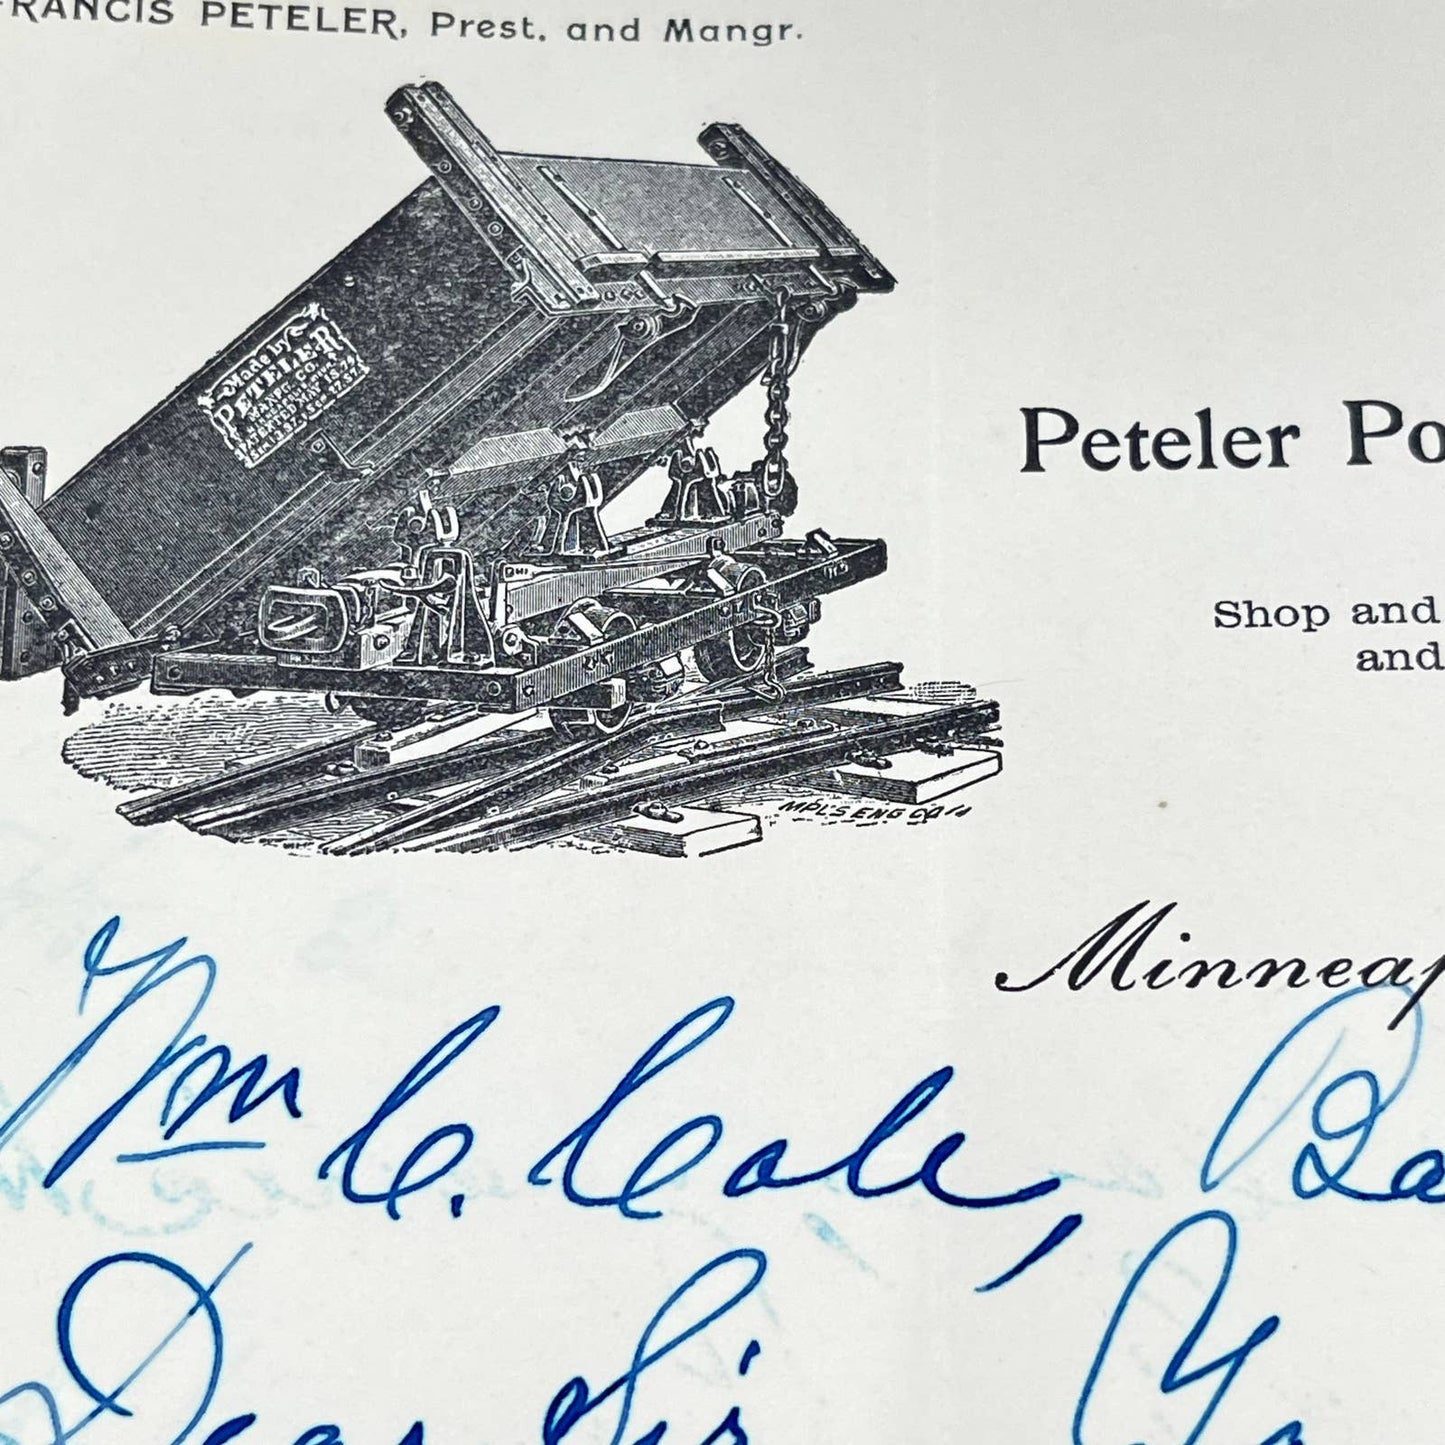 FRANCIS PETELER, Prest. and Mangr.
Made by
PETELER
MANFG. CO.
PATENTED MAY 13, 79,
MPL'S ENG CO
Peteler Po
Shop and
and
Minneap
Wm C. Cole, Ba
Dear Sir Yo